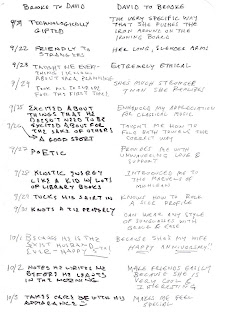 BROOKE TO DAVID
DAVID TO BROOKE
9/21 TECHNOLOGICALLY GIFTED
THE VERY SPECIFIC WAY THAT SHE PUSHES THE IRON AROUND ON THE IRONING BOARD
9/22 FRIENDLY TO STRANGERS
HER LONG, SLENDER ARMS
9/23 TAUGHT ME EVERYTHING I KNOW ABOUT
EXTREMELY ETHICAL
9/24 TOOK ME TO FOR THE FIRST TIME!
SHE'S MUCH STRONGER THAN SHE REALIZES
9/25 EXCITED ABOUT THINGS THAT HE DOESN'T NEED TO BE EXCITED ABOUT FOR THE SAKE OF OTHERS
MY APPRECIATION FOR CLASSICAL MUSIC
9/26 A GOOD SPORT
TAUGHT ME HOW TO THE CORRECT WAY
9/27 POETIC
PROVIDES ME WITH UNWAVERING LOVE & SUPPORT
LIKE A KID W/ LOTS OF LIBRARY BOOKS
INTRODUCED ME TO THE MARVELS OF MICHIGAN
TUCKS HIS SHIRT IN
KNOWS HOW TO ROCK A SIDE PROFILE
KNOTS A TIE PROPERLY
CAN WEAR ANY STYLE OF SUNGLASSES WITH GRACE & EASE
10/1 BECAUSE HE IS THE BEST HUSBAND EVER - HAPPY 5TH!
BECAUSE SHE'S MY WIFE HAPPY ANNIVERSARY!
10/2 NOTES HE WRITES ME BEFORE HE LEAVES IN THE MORNING
MAKES FRIENDS EASILY BECAUSE SHE IS VERY COOL & INTERESTING
10/3 TAKES CARE WITH HIS APPEARANCE
MAKES ME FEEL SPECIAL